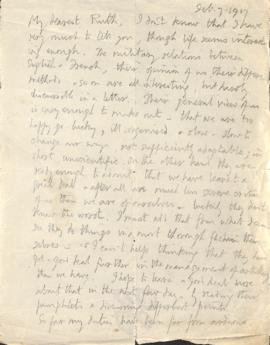 Feb. 7 1917
My dearest Ruth, I don't know that I have
very much to tell you, though life seems
enough. The military relations between
English & French, their opinion of us their different
methods & so on are all interesting, but hardly
discussable in a letter. Their general view of us
is easy enough to make out - that we are too
happy go lucky, ill organised & slow - slow to
change our ways, not sufficiently adaptable, in
short unscientific. On the other hand they are
ready enough to admit that we have learnt a
good deal - after all are much less severe critics
of us than we are of ourselves - but they don't
know the worst. I must add that from what I can
see they do things in a most thorough fashion them
selves - & I can't help thinking that they have
got a good deal further in the management of artillery
than we have. I hope to learn a good deal more
about that in the next few days by reading their
pamphlets & discussing important points.
So far my duties have been far from arduous